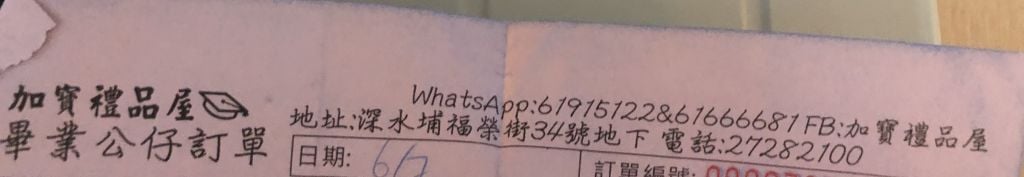 加寶禮品屋
畢業公仔訂單
WhatsApp:61915122&61666681 FB:加寶禮品屋
地址:深水埔福榮街34號地下 電話:27282100
日期: 6/7
訂單編號: